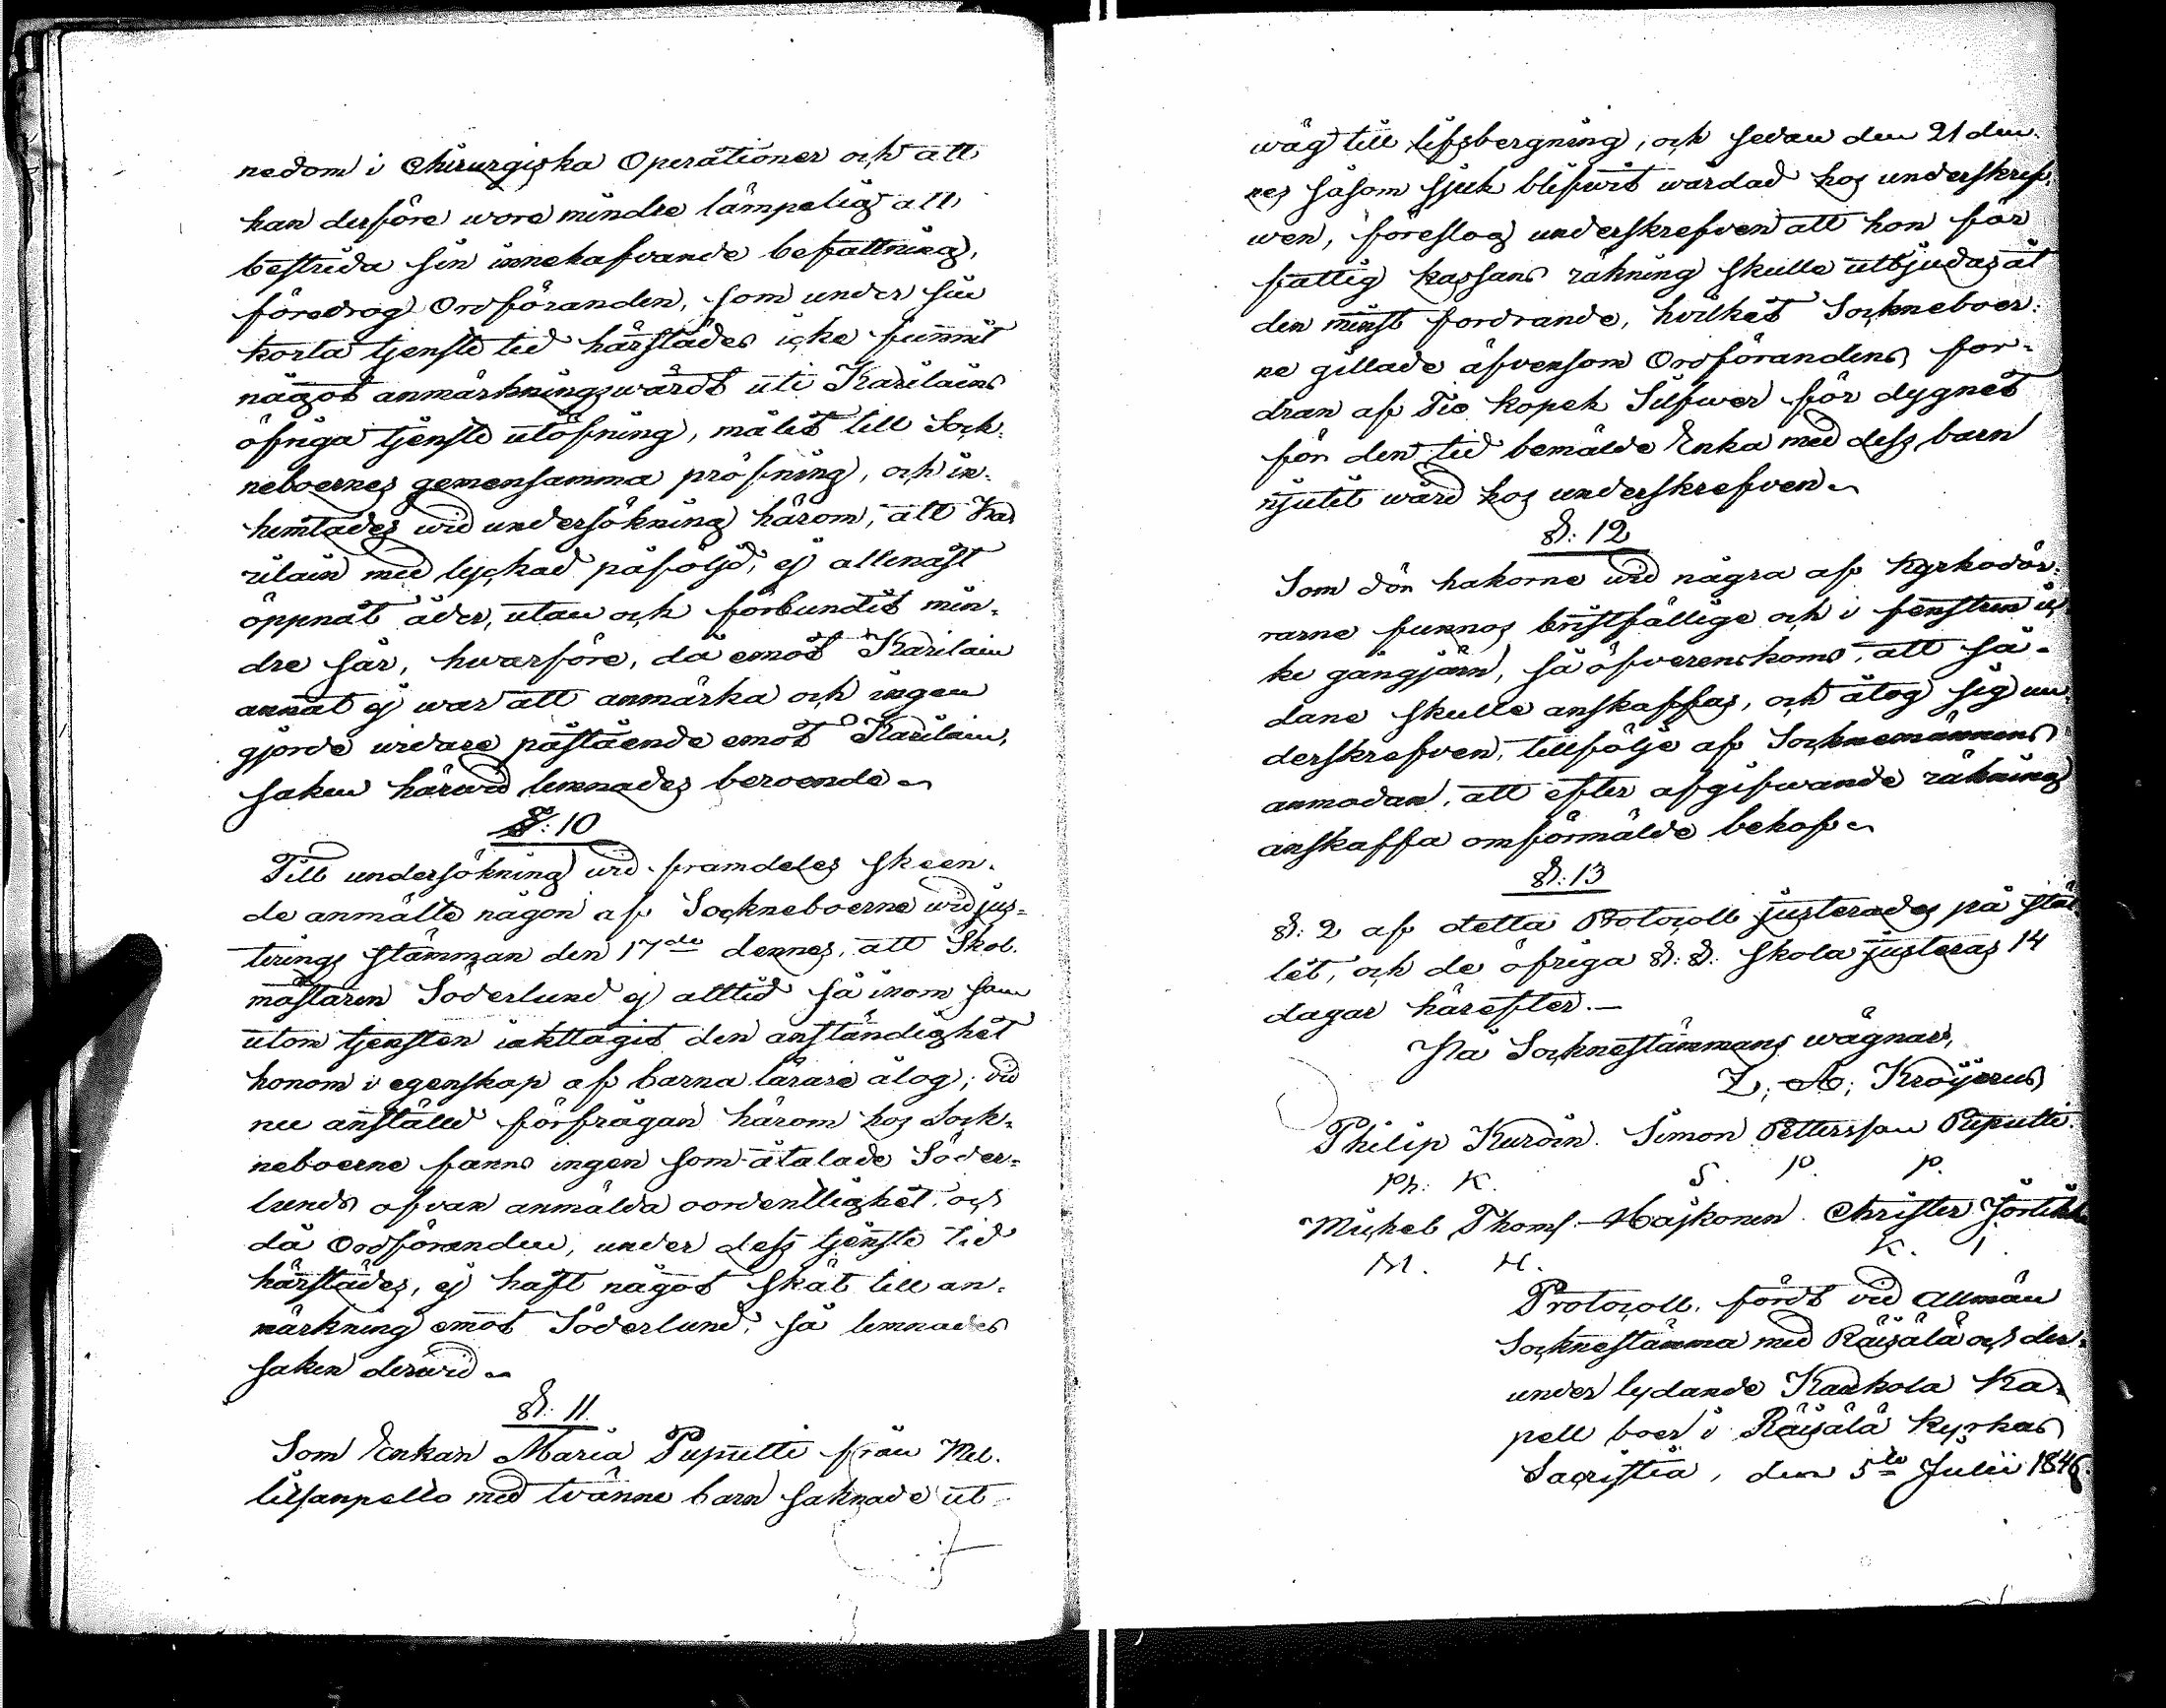 nedom i Chirurgiska Operationer och att
han derföre wore mindre lämpelig att
bestrida sin innehafvande befattning,
föredrog Ordföranden, som under sin
korta tjenste tid härstädes icke funnit
något anmärkningswärdt uti Karilains
öfriga tjenste utöfning, målet till Sock¬
neboernes gemensamma pröfning, och in¬
hemtades wid undersökning härom, att Ka¬
rilain med lyckad påföljd, ej allenast
öppnat åder, utan och förbundit min¬
dre sår, hwarföre, då emot Karilain
annat ej war att anmärka och ingen
gjorde widare påstående emot Karilain,
saken härwid lemnades beroende
§: 10
Till undersökning wid framdeles skeen¬
de anmälte någon af Sockneboerne wid jus¬
terings stämman den 17de dennes, att Skol¬
mästaren Soderlund ej alltid så inom som
utom tjensten iakttagit den anständighet
honom i egenskap af barna lärare ålog; vid
nu anställd förfrågan härom hos Sock¬
neboerne fanns ingen som åtalade Söder¬
lunds ofvan anmälda oordentlighet, och
då Ordföranden, under dess tjenste tid
härstädes, ej haft något skäl till an¬
märkning emot Söderlund, så lemnades
saken derwid
§: 11.
Som Enkan Maria Puputti från Mel.
lilsanpello med twänne barn saknade ut
wäg till lifsbergning, och sedan den 21 den¬
nes såsom sjuk blifwit wårdad hos underskref¬
wen, föreslog underskrefven att hon för
fattig kassans räkning skulle utbjudas åt
den minst fordrande, hvilket Sockneboer¬
ne gillade äfvensom Ordförandens for¬
dran af Tio kopek Silfwer för dygnet
för den tid bemälde Enka med dess barn
njutit wård hos underskrefven
§: 12
Som dörr hakorne wid några af Kyrkodör¬
rarne funnos bristfällige och i fenstren ic
ke gångjärn, så öfverenskoms, att så¬
dane skulle anskaffas, och åtog sig un
derskrefven, tillfölje af Socknemännens
anmodan, att efter afgifwande räkning
anskaffa omförmälde behof
§: 13
§: 2 af detta Protocoll justerades på stäl
let, och de öfriga §: §: skola justeras 14
dagar härefter.—
På Socknestämmans wägnar,
Z: A: Kröyerus
Philip Kurvin. Simon Pettersson Puputti.
Ph: K. S. P. P.
Michel Thomss. Haskonen. Christer
M. H. K. I.
Protocoll, fördt vid allmän
Socknestämma med Räisälä och der¬
under lydande Kaukola Ka¬
pell boer i Räisälä Kyrkas
Sacristia, den 5te Julii 1846.